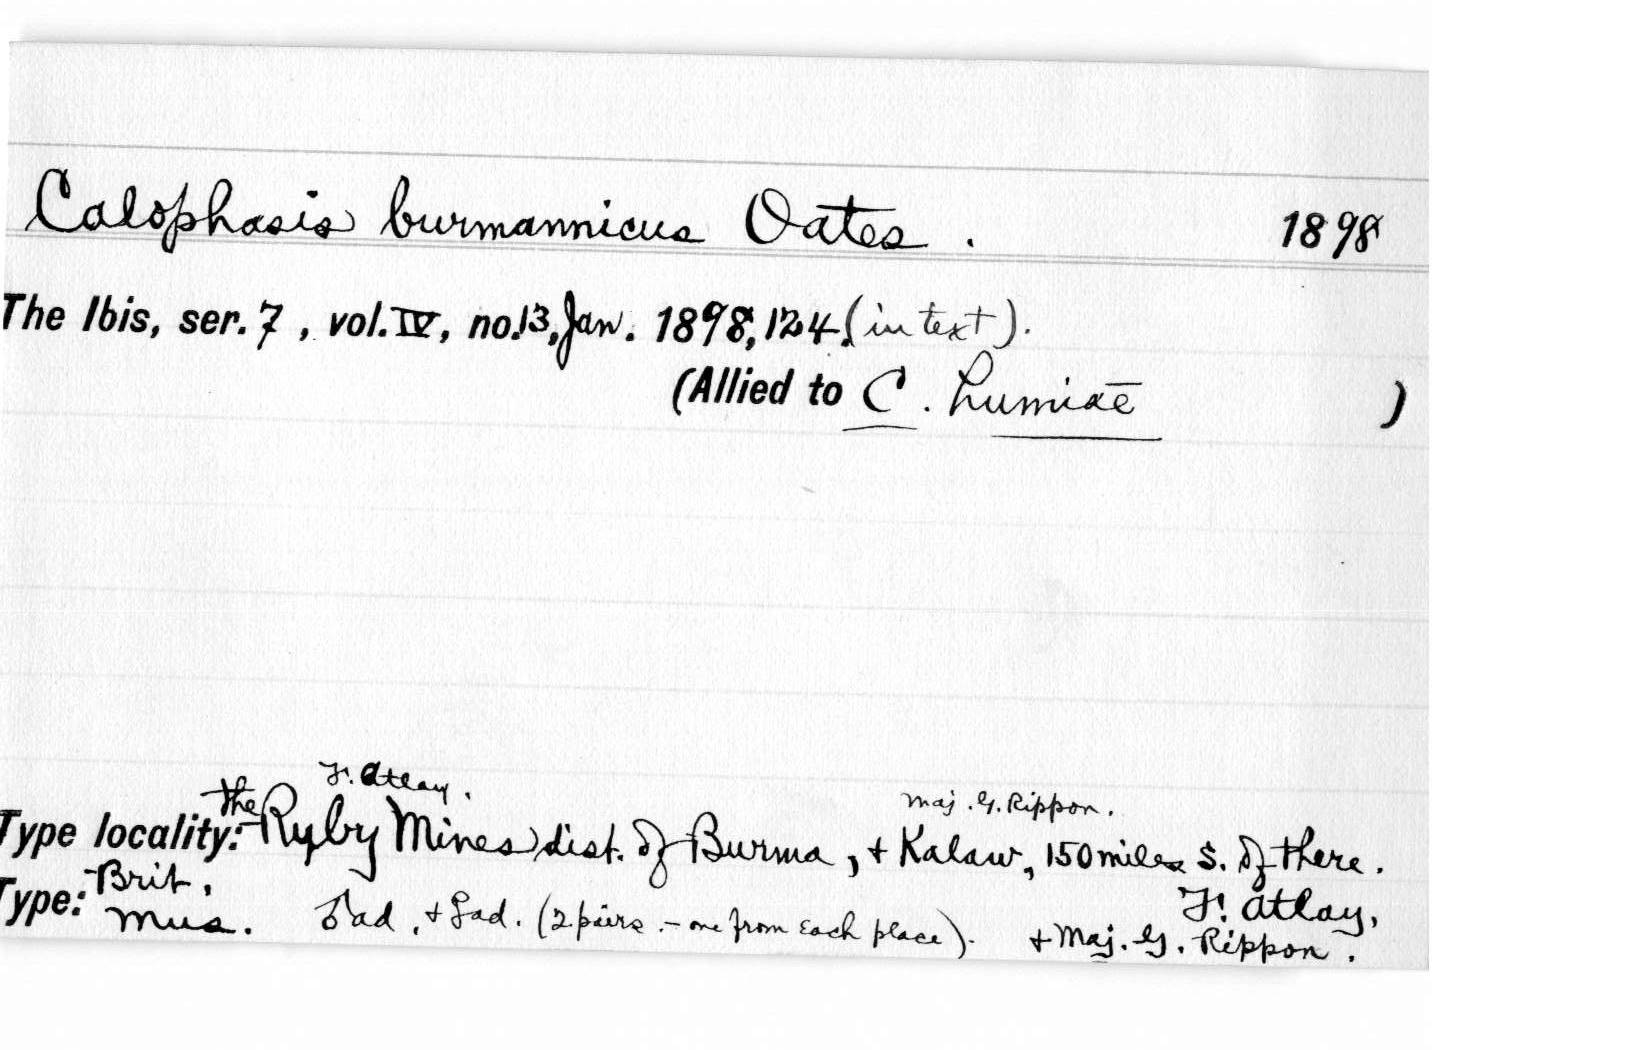 Calophasis burmannicus Oates. 1898
The Ibis, ser. 7, vol. IV, no. 13, Jan. 1898, 124. (in text).
(Allied to C. humiæ )
F. Atlay. Maj. G. Rippon.
Type locality: the Ruby Mines dist. of Burma, + Kalaw, 150 miles S. of there.
Type: Brit. Mus. ♂ad. + ♀ad. (2 pairs - one from each place). F. Atlay,
+ Maj. G. Rippon.